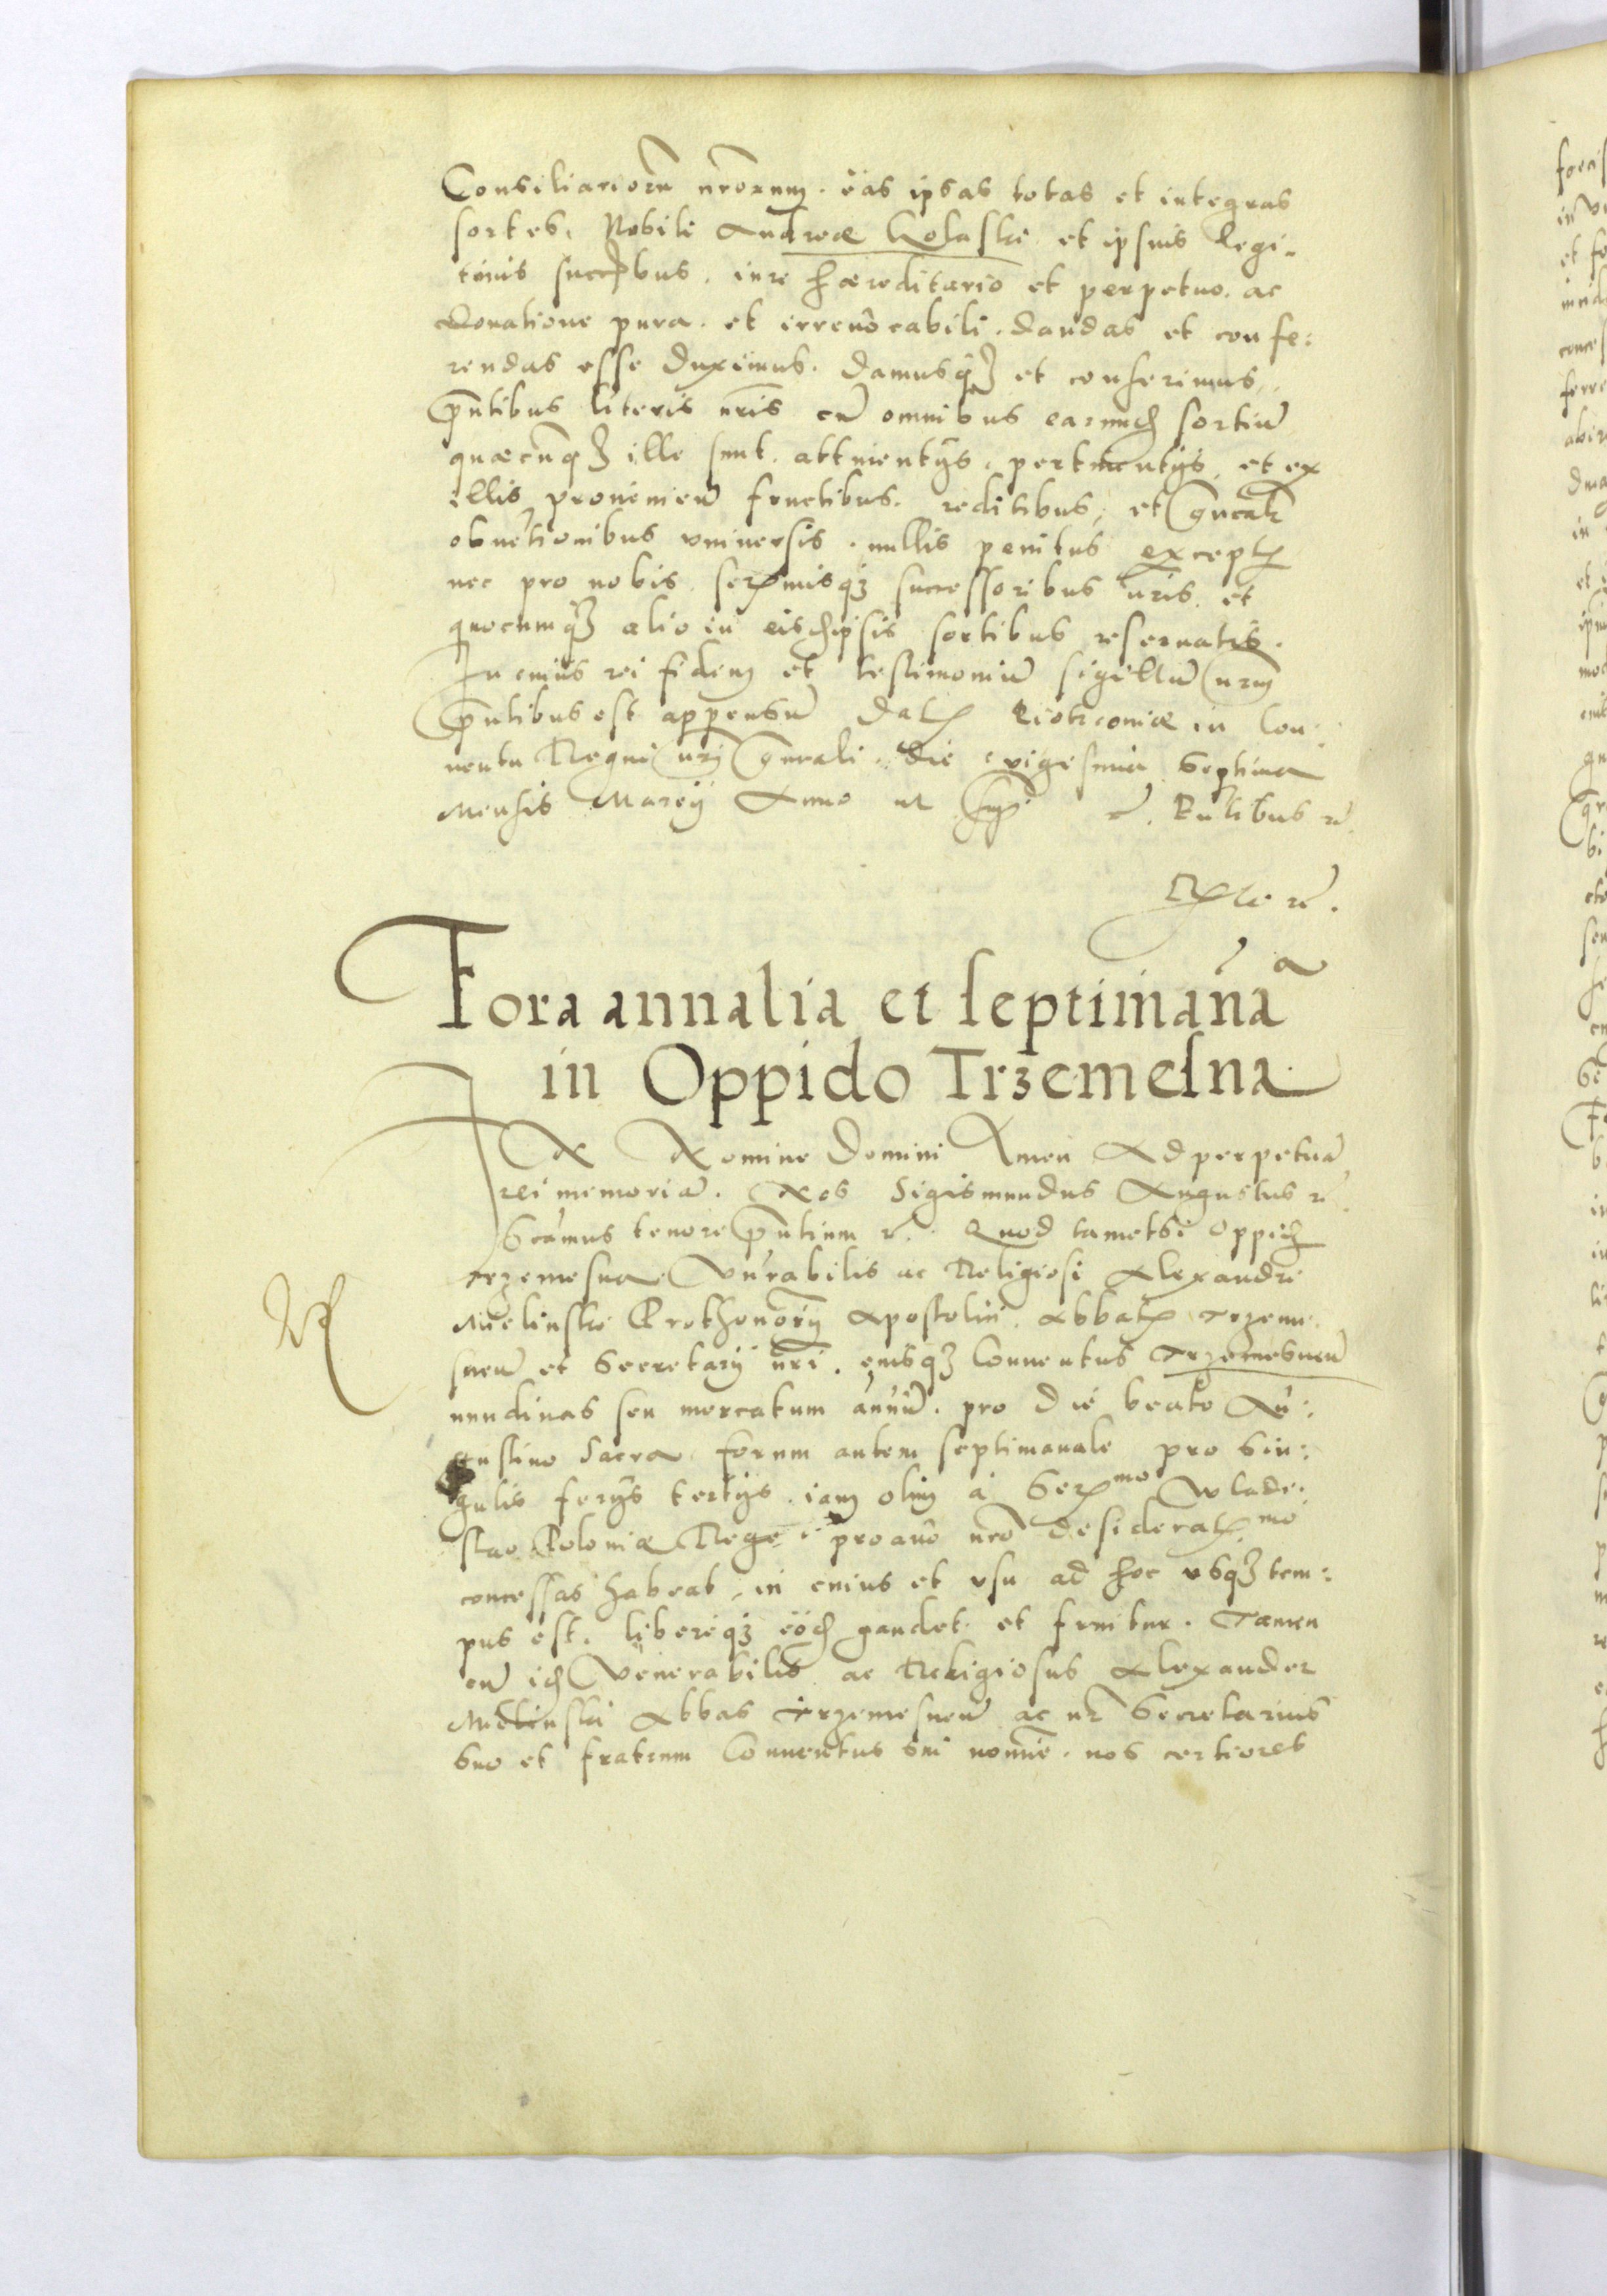 Consiliarioru nrorum. eas ipsas totas et integras
sortes, Nobili Andreæ Kolaski et ipsius legi-
timis succribus. iure hæreditario et perpetuo. ac
donatione pura. et irreuocabili. dandas et confe:
rendas esse duximus. damusq3 et conferimus.
pntibus literis nris cu omnibus earund sortiu
quæcunq3 ille sunt. attinentijs, pertinentijs, et ex
illis prouenien fructibus. reditibus, et gnealr
obuetionibus vniuersis. nullis penitus except
nec pro nobis. sermisq3 successoribus nris, et
quocumq3 alio in eisdipsis sortibus reseruatis.
In cuius rei fidem et testimoniu sigillu nrm
pntibus est appensu dat Piotrconiæ in Con:
uentu Regni nri gnrali. die vigesima Septima
Mensis Marcij Anno ut sup. Pntibus rc.
Rle rc.
Fora annalia et septimana
in Oppido Trzemesna
IN Nomine Domini Amen Ad perpetua
rei memoria. Nos Sigismundus Augustus rc
Scimus tenore pntium rc. Quod tametsi Oppid
Trzemesna Vnrabilis ac Religiosi Alexandri
Mielinski Prothonorij Apostolici. Abbat Trzeme
snen et Secretarij nri. eiusq3 Conuentus Trzemesnen
nundinas seu mercatum annu. pro die beato Au:
gustino Sacra. forum autem septimanale pro sin:
gulis ferijs tertijs. iam olim à Sermo Wladi
slao Poloniæ Rege. proauo nro desideratmo
concessas habeat, in cuius et vsu ad hoc vsq3 tem:
pus est. libereq3 eod gaudet. et fruitur. Tamen
cu id Venerabilis ac Religiosus Alexander
Mielinski Abbas Trzemesnen ac nr Secretarius
suo et fratrum Conuentus sui nomine. nos certiores